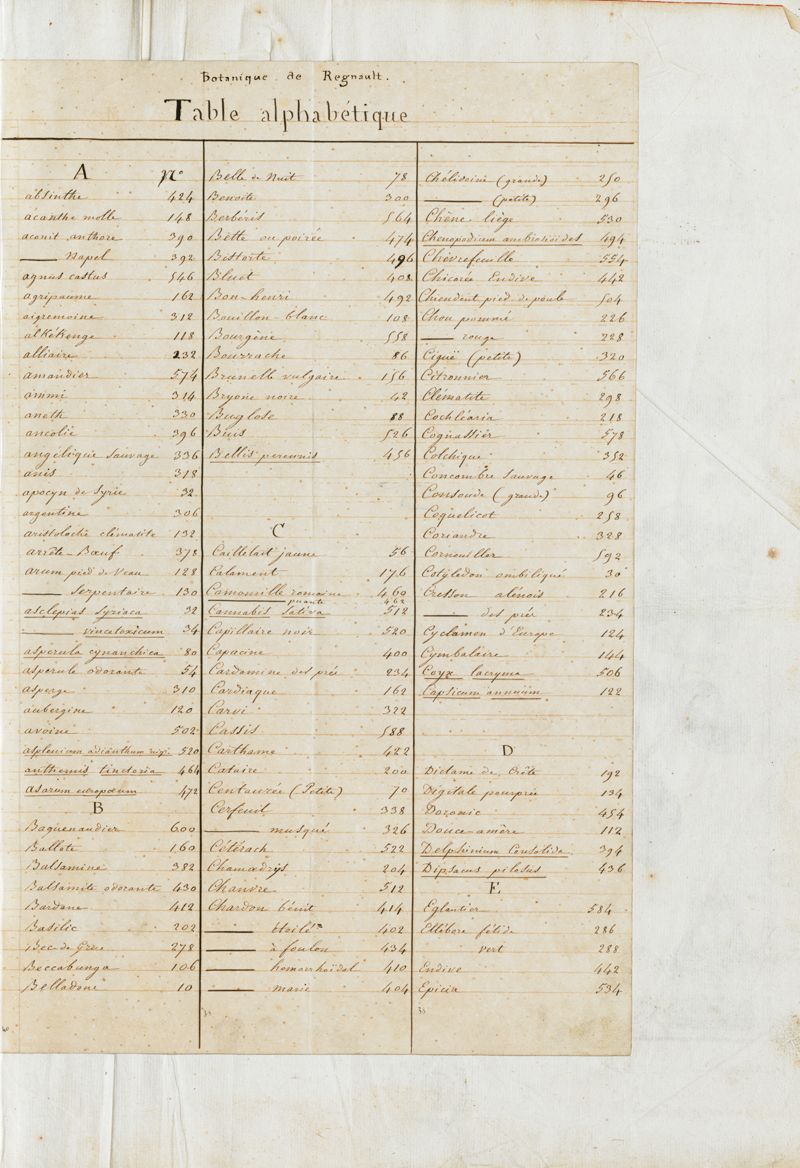 Botanique de Regnault.
Table alphabétique
A no
absinthe 424
acanthe molle 148
aconit anthore 390
—— Napel 392
agnus castus 546
agripaume 162
aigremoine 312
alkékenge 118
alliaire 232
amandier 574
ammi 314
aneth 330
ancolie 396
angélique sauvage 336
anis 318
apocyn de Syrie 32
argentine 306
aristoloche clématite 132
arrête-Bœuf 378
arum pied de Veau 128
—— serpentaire 130
asclepias Syriaca 32
—— vincetoxicum 34
asperula cynanchica 80
asperule odorante 54
asperge 310
aubergine 120
avoine 502
asplenium adianthum nigr. 520
anthemis tinctoria 464
asarum europœum 472
B
Baguenaudier 600
Ballote 160
Balsamine 382
Balsamite odorante 430
Bardane 412
Basilic 202
Bec de Grue 278
Beccabunga 106
Belladone 10
Belle de Nuit 78
Benoite 300
Berbéris 564
Bette ou poirée 474
Bistorte 496
Bluet 408
Bon-henri 492
Bouillon-blanc 108
Bourgène 558
Bourrache 86
Brunelle vulgaire 156
Bryone noire 42
Buglose 88
Buis 526
Bellis perennis 456
C
Caillelait jaune 56
Calament 176
Camomille romaine 460
puante 462
Cannabis Sativa 512
Capillaire noir 520
Capucine 400
Cardamine des prés 234
Cardiaque 162
Carvi 322
Cassis 588
Carthame 422
Cataire 200
Centaurée (Petite) 70
Cerfeuil 338
—— musqué 326
Cétérach 522
Chamœdrys 204
Chanvre 512
Chardon bénit 414
—— étoilé 402
—— à foulon 434
—— hémorrhoïdal 410
—— marie 404
Chélidoine (grande) 250
—— (petite) 296
Chêne liège 530
Chenopodium ambrosioides 494
Chèvrefeuille 554
Chicorée Endive 442
Chiendent pied de poule 504
Chou pommé 226
—— rouge 228
Ciguë (petite) 320
Citronnier 566
Clématite 298
Cochléaria 218
Cognassier 578
Colchique 352
Concombre Sauvage 46
Consoude (grande) 96
Coquelicot 258
Coriandre 328
Cornouiller 592
Cotylédon ombiliqué 30
Cresson alénois 216
—— des prés 234
Cyclamen d'Europe 124
Cymbalaire 144
Coyx lacryma 506
Capsicum annuum 122
D
Dictame de Crête 192
Digitale pourprée 134
Doronic 454
Douce-amère 112
Delphinium Consolida 394
Dipsacus pilosus 436
E
Eglantier 584
Ellébore fétide 286
vert 288
Endive 442
Epicia 534